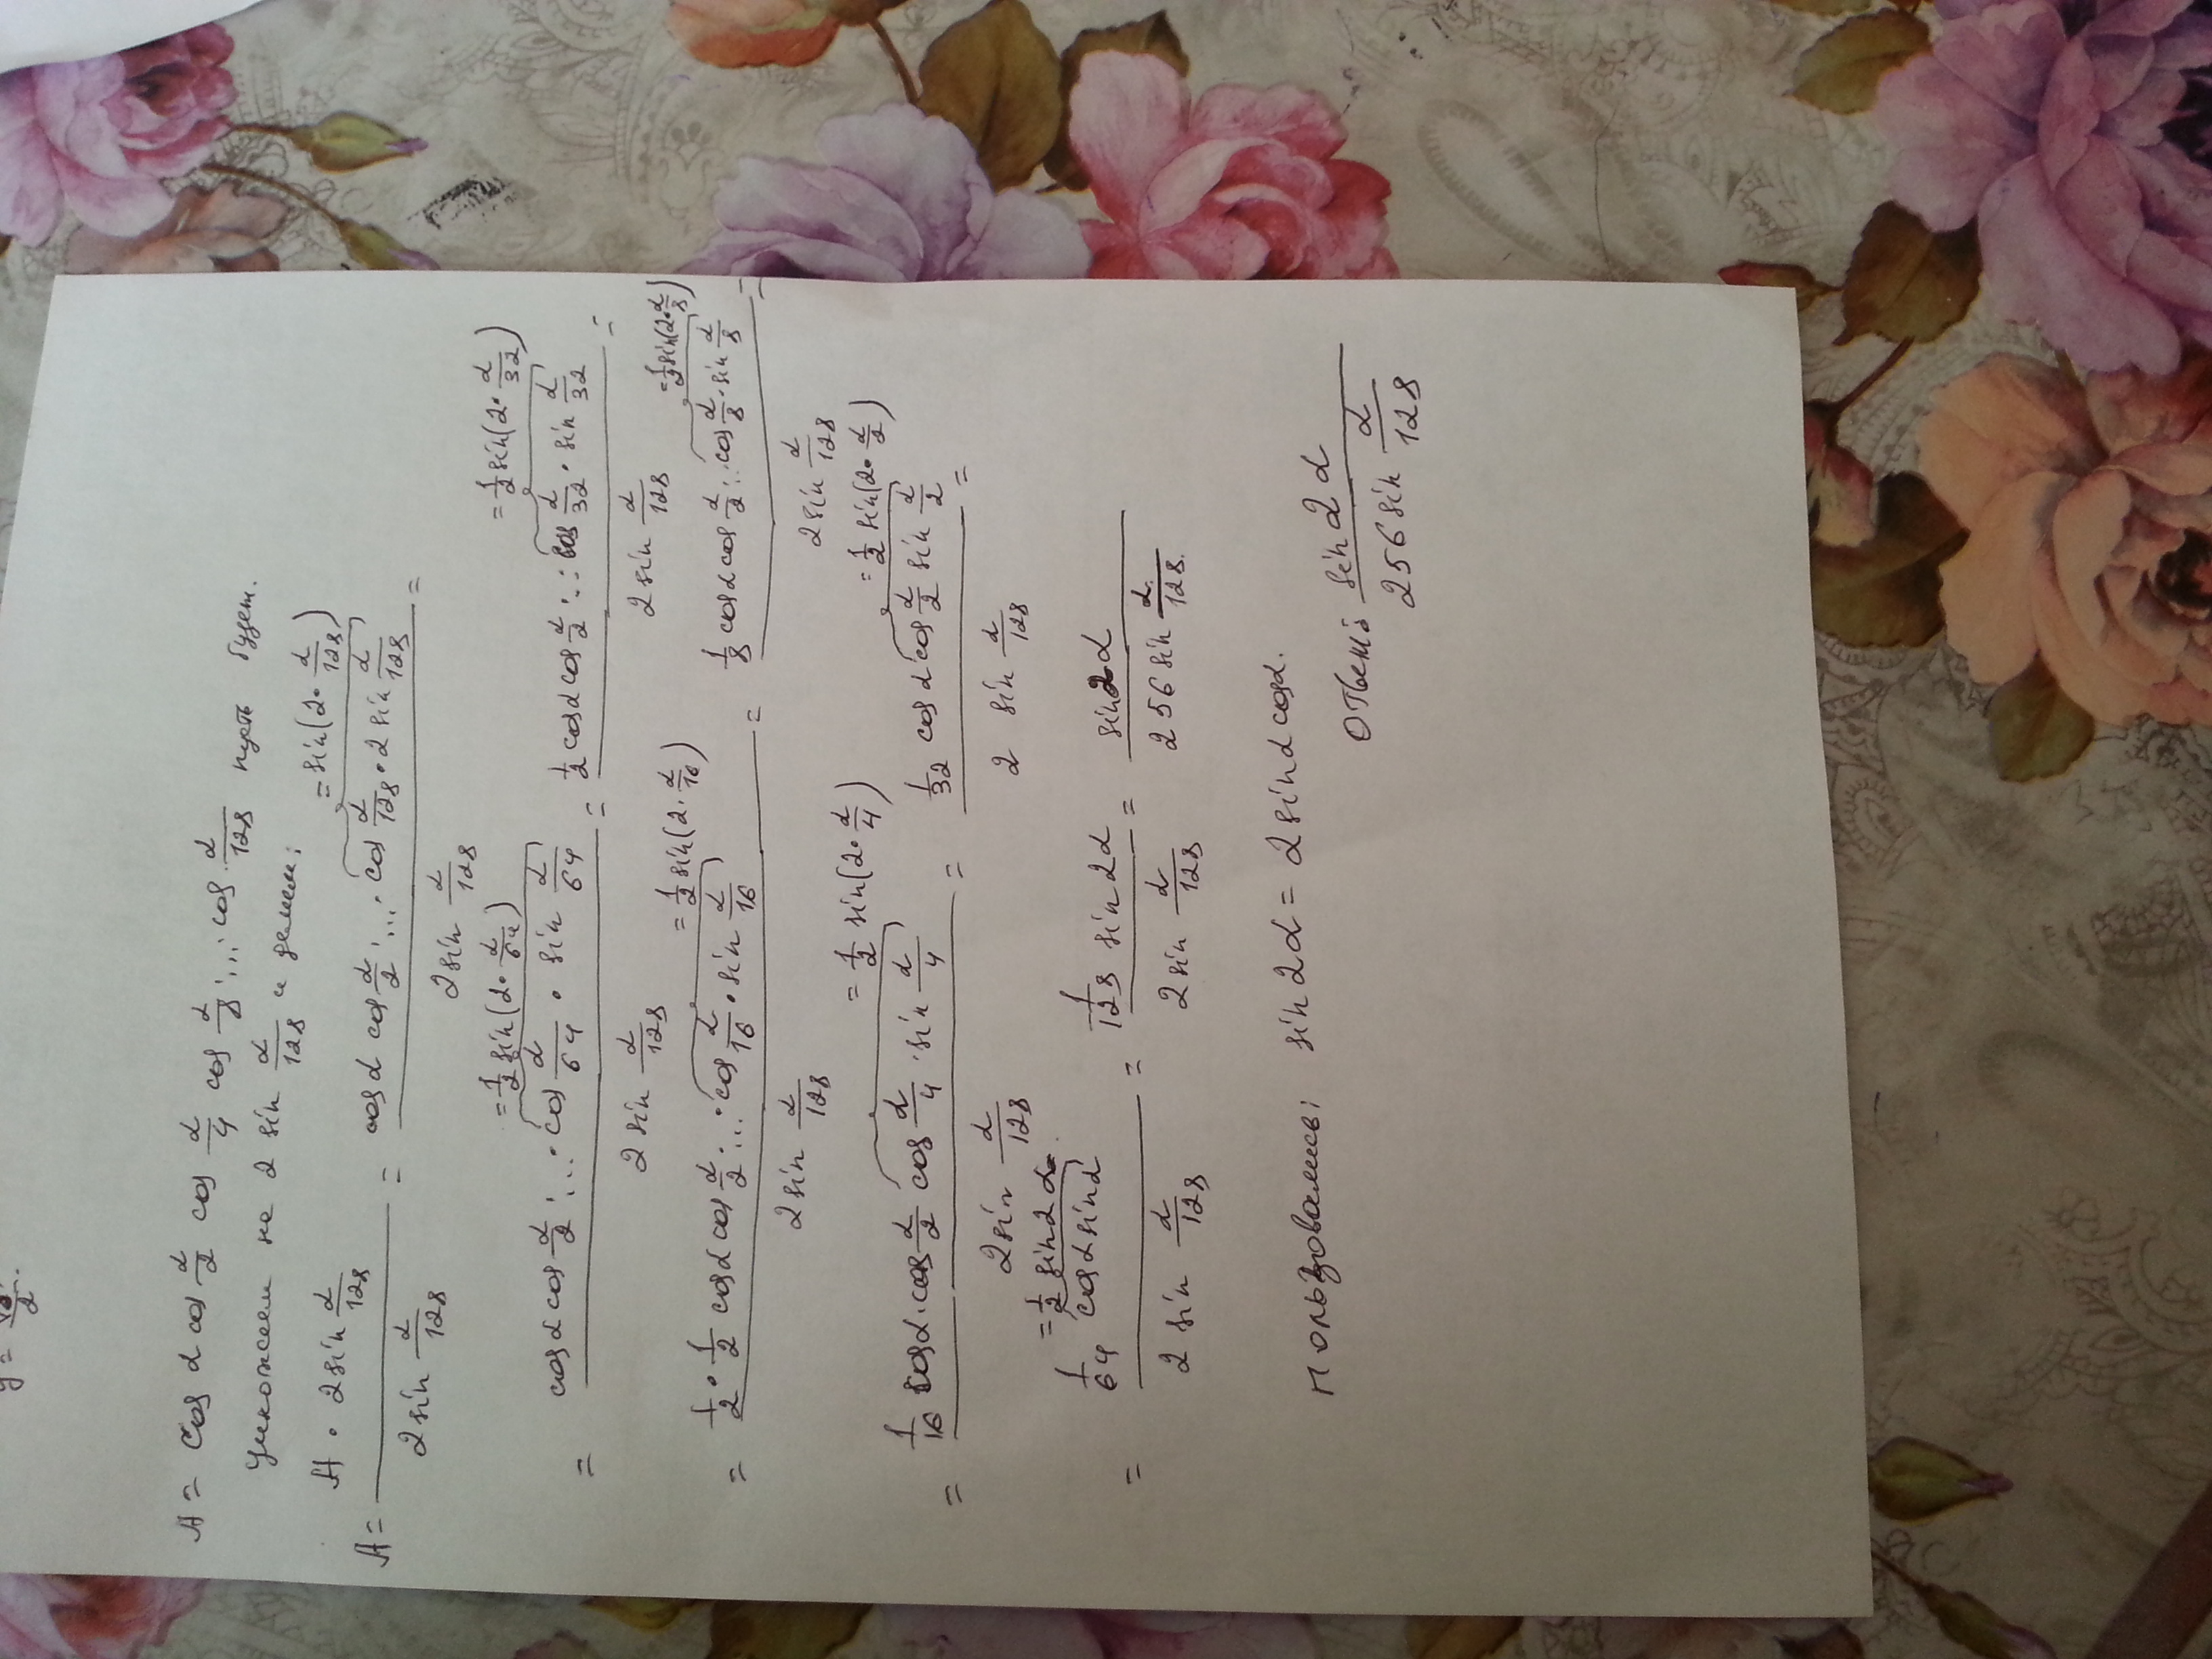 A = cos α cos α/2 cos α/4 cos α/8 ·...· cos α/128 пусть будет.
Умножаем на 2 sin α/128 и делим:
A = (A · 2 sin α/128) / (2 sin α/128) = (cos α cos α/2 ·...· cos α/128 · 2 sin α/128) / (2 sin α/128) =
= sin(2 · α/128)
= (cos α cos α/2 ·...· cos α/64 · sin α/64) / (2 sin α/128) = (1/2 cos α cos α/2 ·...· cos α/32 · sin α/32) / (2 sin α/128) =
= 1/2 sin(2 · α/64) = 1/2 sin(2 · α/32)
= (1/2 · 1/2 cos α cos α/2 ·...· cos α/16 · sin α/16) / (2 sin α/128) = (1/8 cos α cos α/2 ·...· cos α/8 · sin α/8) / (2 sin α/128) =
= 1/2 sin(2 · α/16) = 1/2 sin(2 · α/8)
= (1/16 cos α · cos α/2 cos α/4 · sin α/4) / (2 sin α/128) = (1/32 cos α cos α/2 sin α/2) / (2 sin α/128) =
= 1/2 sin(2 · α/4) = 1/2 sin(2 · α/2)
= (1/64 cos α sin α) / (2 sin α/128) = (1/128 sin 2α) / (2 sin α/128) = sin 2α / (256 sin α/128)
= 1/2 sin 2α
Пользовались: sin 2α = 2 sin α cos α.
Ответ: sin 2α / (256 sin α/128)